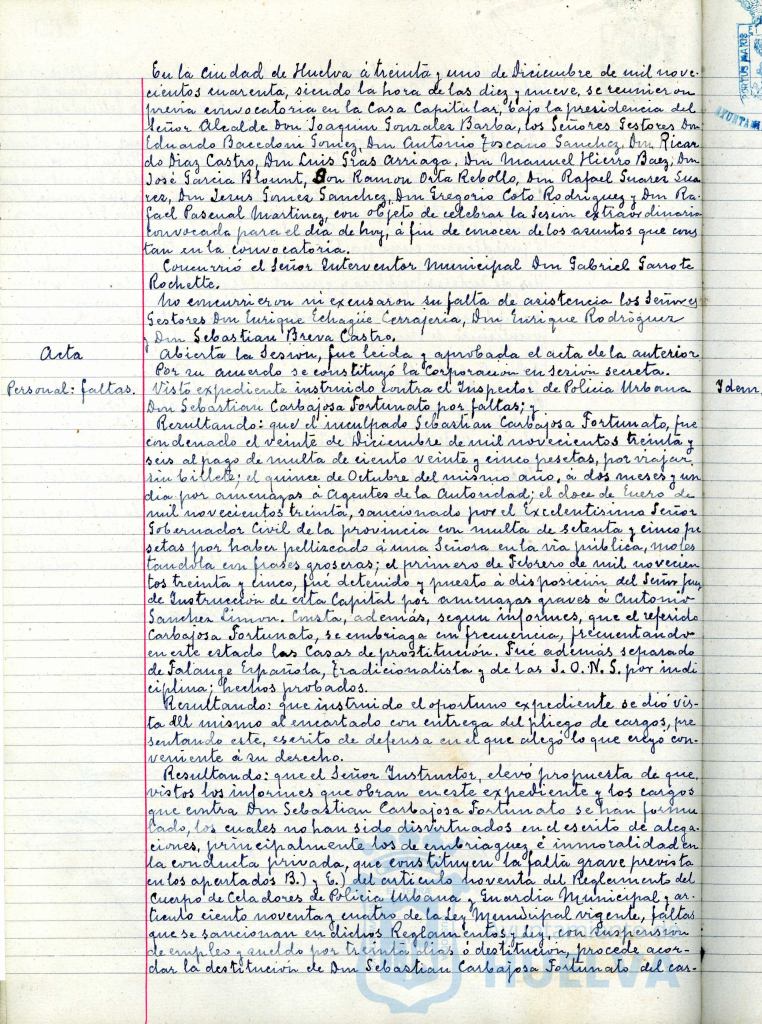 En la ciudad de Huelva á treinta y uno de Diciembre de mil nove-
cientos cuarenta, siendo la hora de las diez y nueve, se reunieron
previa convocatoria en la Casa Capitular, bajo la presidencia del
Señor Alcalde Don Joaquin Gonzalez Barba, los Señores Gestores Don
Eduardo Bacedoni Gomez, Don Antonio Toscano Sanchez, Don Ricar-
do Diaz Castro, Don Luis Gras Arriaga, Don Manuel Hierro Baez, Don
José Garcia Blount, Don Ramon Orta Rebollo, Don Rafael Suarez Sua-
rez, Don Jesus Gomez Sanchez, Don Gregorio Coto Rodriguez y Don Ra-
fael Pascual Martinez, con objeto de celebrar la Sesion extraordinaria
convocada para el dia de hoy, á fin de conocer de los asuntos que cons-
tan en la convocatoria.
Concurrió el Señor Interventor Municipal Don Gabriel Garrote
Rochette.
No concurrieron ni excusaron su falta de asistencia los Señores
Gestores Don Enrique Echagüe Cerrajeria, Don Enrique Rodríguez
y Don Sebastian Breva Castro.
Acta
Abierta la Sesion, fue leida y aprobada el acta de la anterior
Por su acuerdo se constituyó la Corporacion en sesion secreta.
Personal: faltas.
Visto expediente instruido contra el Inspector de Policia Urbana
Idem.
Don Sebastian Carbajosa Fortunato por faltas; y
Resultando: que el inculpado Sebastian Carbajosa Fortunato, fue
condenado el veinte de Diciembre de mil novecientos treinta y
seis al pago de multa de ciento veinte y cinco pesetas, por viajar
sin billete; el quince de Octubre del mismo año, á dos meses y un
dia por amenazas á Agentes de la Autoridad; el doce de Enero de
mil novecientos treinta, sancionado por el Excelentisimo Señor
Gobernador Civil de la provincia con multa de setenta y cinco pe-
setas por haber pellizcado á una Señora en la via pública, moles-
tandola con frases groseras; el primero de Febrero de mil novecien-
tos treinta y cinco, fué detenido y puesto á disposicion del Señor Juez
de Instruccion de esta Capital por amenazas graves á Antonio
Sanchez Limon. Consta, además, segun informes, que el referido
Carbajosa Fortunato, se embriaga con frecuencia, frecuentando
en este estado las Casas de prostitución. Fué además separado
de Falange Española, Tradicionalista y de las J.O.N.S. por indi-
ciplina; hechos probados.
Resultando: que instruido el oportuno expediente se dió vis-
ta del mismo al encartado con entrega del pliego de cargos, pre-
sentando este, escrito de defensa en el que alegó lo que creyó con-
veniente á su derecho.
Resultando: que el Señor Instructor, elevó propuesta de que,
vistos los informes que obran en este expediente y los cargos
que contra Don Sebastian Carbajosa Fortunato se han formu-
lado, los cuales no han sido disvirtuados en el escrito de alega-
ciones, principalmente los de embriaguez é inmoralidad en
la conducta privada, que constituyen la falta grave prevista
en los apartados B.) y E.) del articulo noventa del Reglamento del
Cuerpo de Celadores de Policia Urbana y Guardia Municipal y ar-
ticulo ciento noventa y cuatro de la Ley Municipal vigente, faltas
que se sancionan en dichos Reglamentos y Ley con suspensión
de empleo y sueldo por treinta dias ó destitución, procede acor-
dar la destitucion de Don Sebastian Carbajosa Fortunato del car-
HUELVA